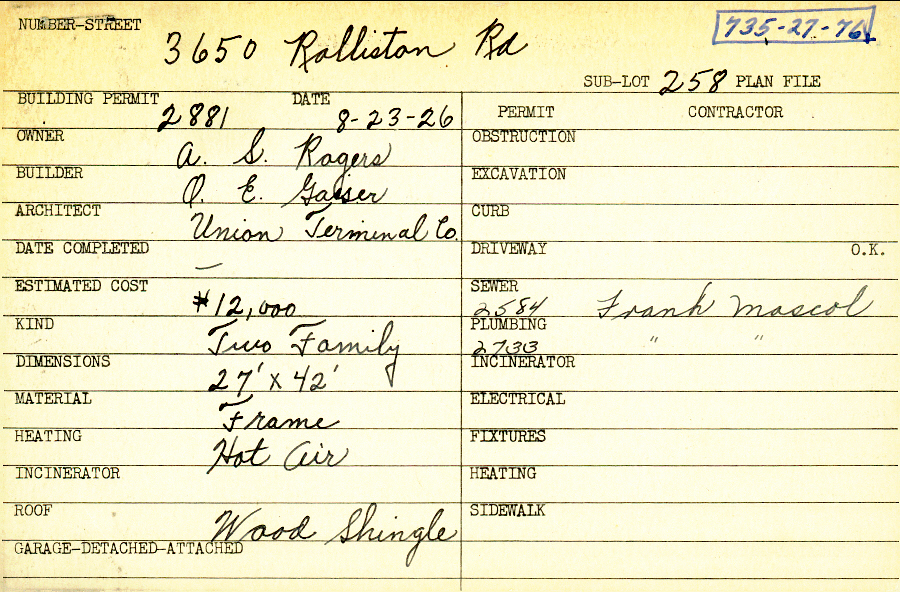 NUMBER-STREET
3650 Rolliston Rd
735-27-76
SUB-LOT 258 PLAN FILE
BUILDING PERMIT DATE
2881 8-23-26
PERMIT CONTRACTOR
OWNER
A. S. Rogers
OBSTRUCTION
BUILDER
O. E. Gaiser
EXCAVATION
ARCHITECT
Union Terminal Co.
CURB
DATE COMPLETED
—
DRIVEWAY O.K.
ESTIMATED COST
$12,000
SEWER
2584 Frank Mascol
KIND
Two Family
PLUMBING
2733 " "
DIMENSIONS
27' x 42'
INCINERATOR
MATERIAL
Frame
ELECTRICAL
HEATING
Hot Air
FIXTURES
INCINERATOR
HEATING
ROOF
Wood Shingle
SIDEWALK
GARAGE-DETACHED-ATTACHED